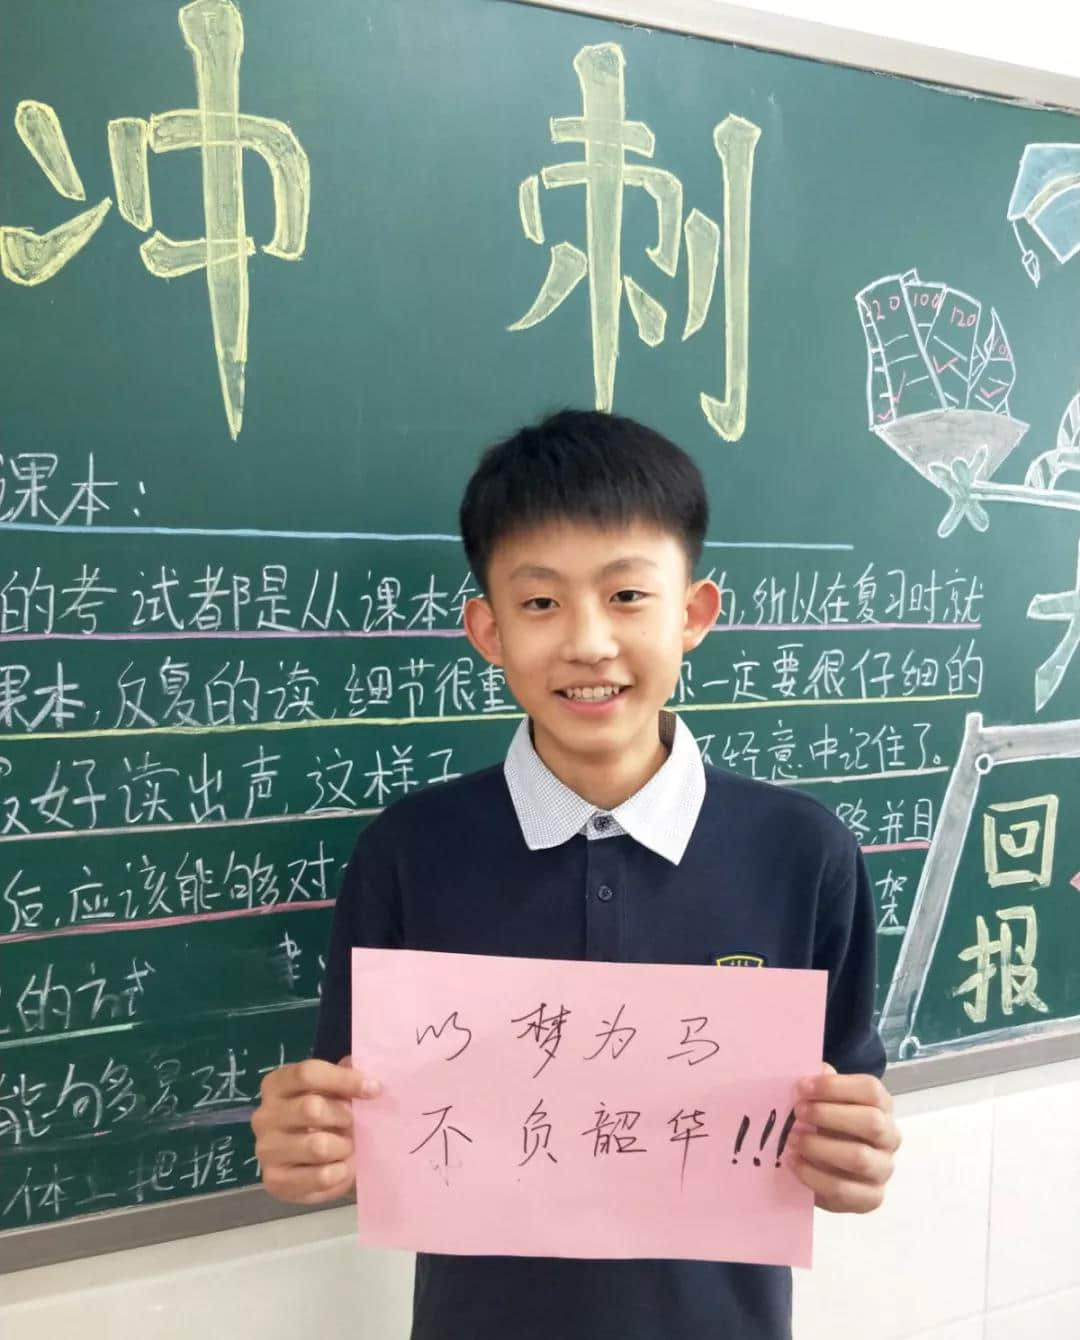 冲刺
120 100 120
课本：
的考试都是从课本
所以在复习时就
课本，反复的读，细节很重
一定要很仔细的
好读出声，这样子
不经意中记住了。
路，并且
后，应该能够对
架
的方式
能够复述
体上把握
回报
以梦为马
不负韶华!!!